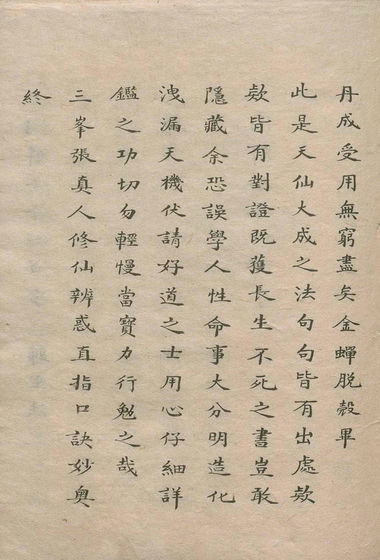 丹成受用無窮盡矣金蟬脫殼畢
此是天仙大成之法句句皆有出處款
款皆有對證既獲長生不死之書豈敢
隱藏余恐誤學人性命事大分明造化
洩漏天機伏請好道之士用心仔細詳
鑑之功切勿輕慢當寶力行勉之哉
三峯張真人修仙辨惑直指口訣妙奧
終